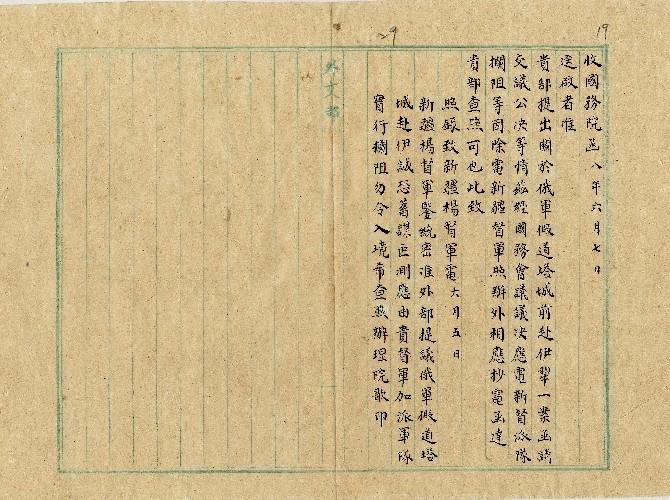 19
29
收國務院函 八年六月七日
逕啟者准
貴部提出關於俄軍假道塔城前赴伊犂一案函請
交議公決等情茲經國務會議議決應電新督派隊
攔阻等因除電新疆督軍照辦外相應抄電函達
貴部查照可也此致
照錄致新疆楊督軍電 六月五日
新疆楊督軍鑒統密准外部提議俄軍假道塔
城赴伊誠恐舊謀叵測應由貴督軍加派軍隊
實行攔阻勿令入境希查照辦理院歌印
外交部